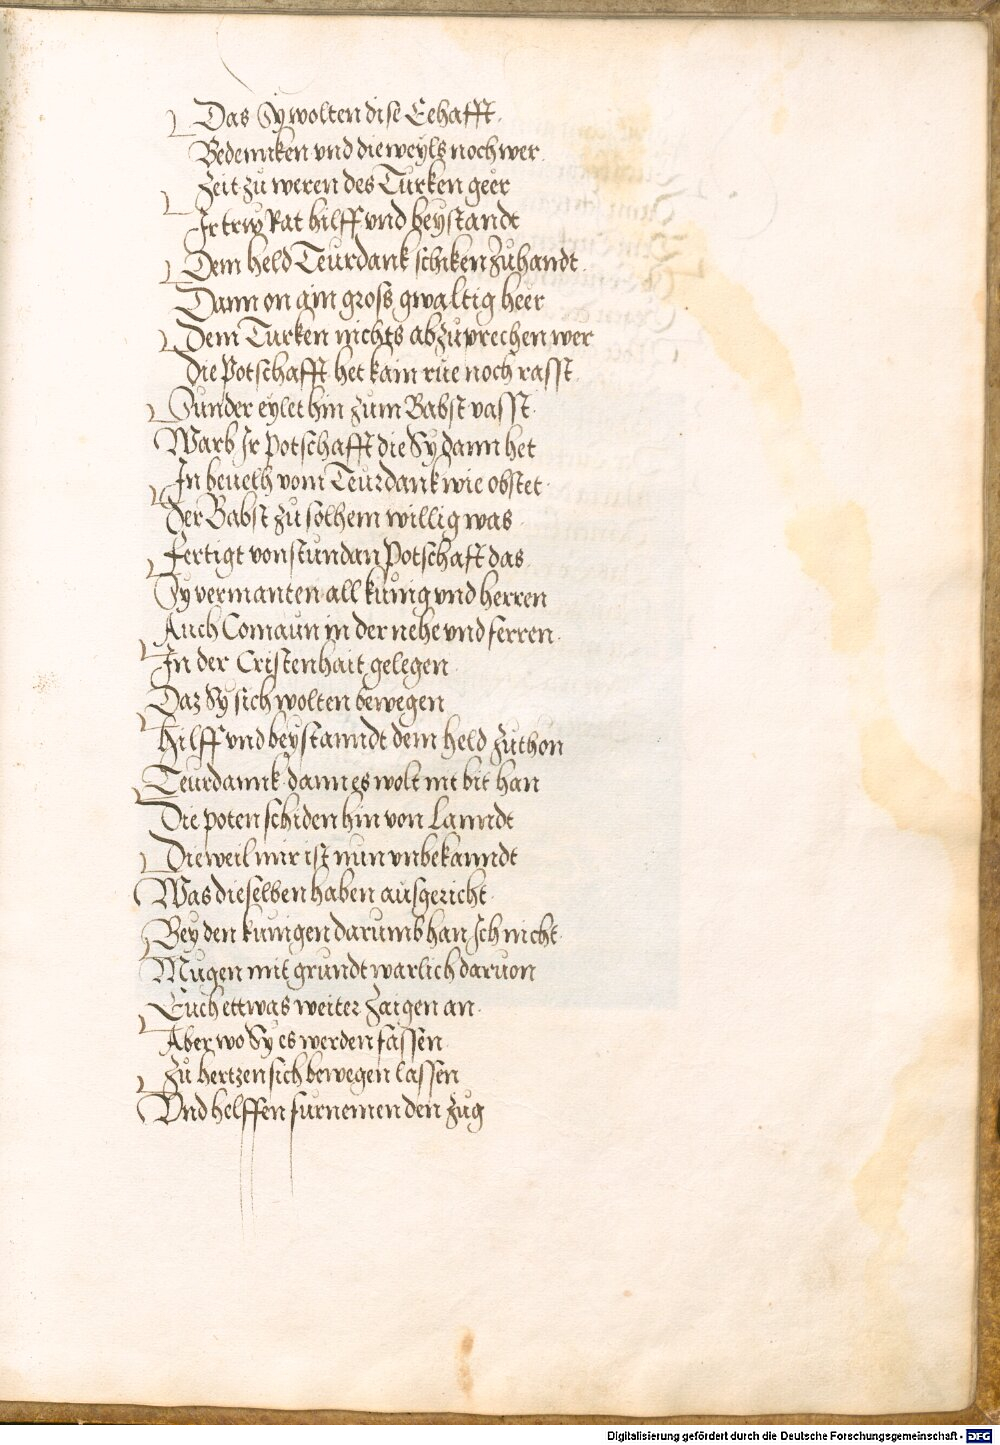 Das Sy wolten dise Eehafft.
Bedennken vnd die weyls noch wer
Zeit zu weren des Turken geer
Ir trw Rat hilff vnd beystandt
Dem held Teurdank schiken Zůhandt.
Dann on ain gross gwaltig heer
Dem Turken nichts abzůprechen wer
Die Potschafft het kain rue noch rasst.
Sunder eylet hin zům Babst vasst.
Warb Ir potschafft die Sy dann het
In beuelh vom Teurdank wie obstet.
Der Babst zů solhem willig was.
Fertigt von stundan Potschafft das.
Sy vermanten all kůnig vnd herren
Auch Comaun in der nehe vnd ferren.
In der Cristenhait gelegen.
Daz Sy sich wolten bewegen
Hilff vnd beystanndt dem held Zuthon
Teurdannk dann es wolt nit bit han
Die poten schiden hin von Lanndt
Dieweil mir ist nun vnbekanndt
Was dieselben haben ausgericht.
Bey den kunigen darumb han Ich nicht.
Mugen mit grundt warlich daruon
Euch ettwas weiter Zaigen an.
Aber wo Sy es werden fassen
Zů hertzen sich bewegen lassen
Vnd helffen furnemen den Zug
Digitalisierung gefördert durch die Deutsche Forschungsgemeinschaft - DFG